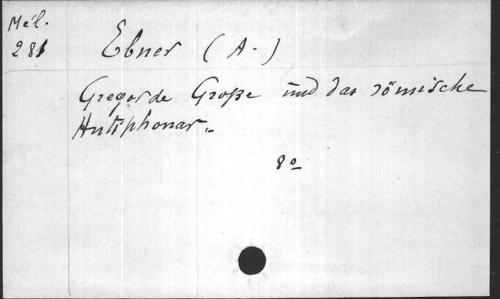 Mél.
281
Ebner (A.)
Gregor de Große und das römische
Antiphonar.
8º